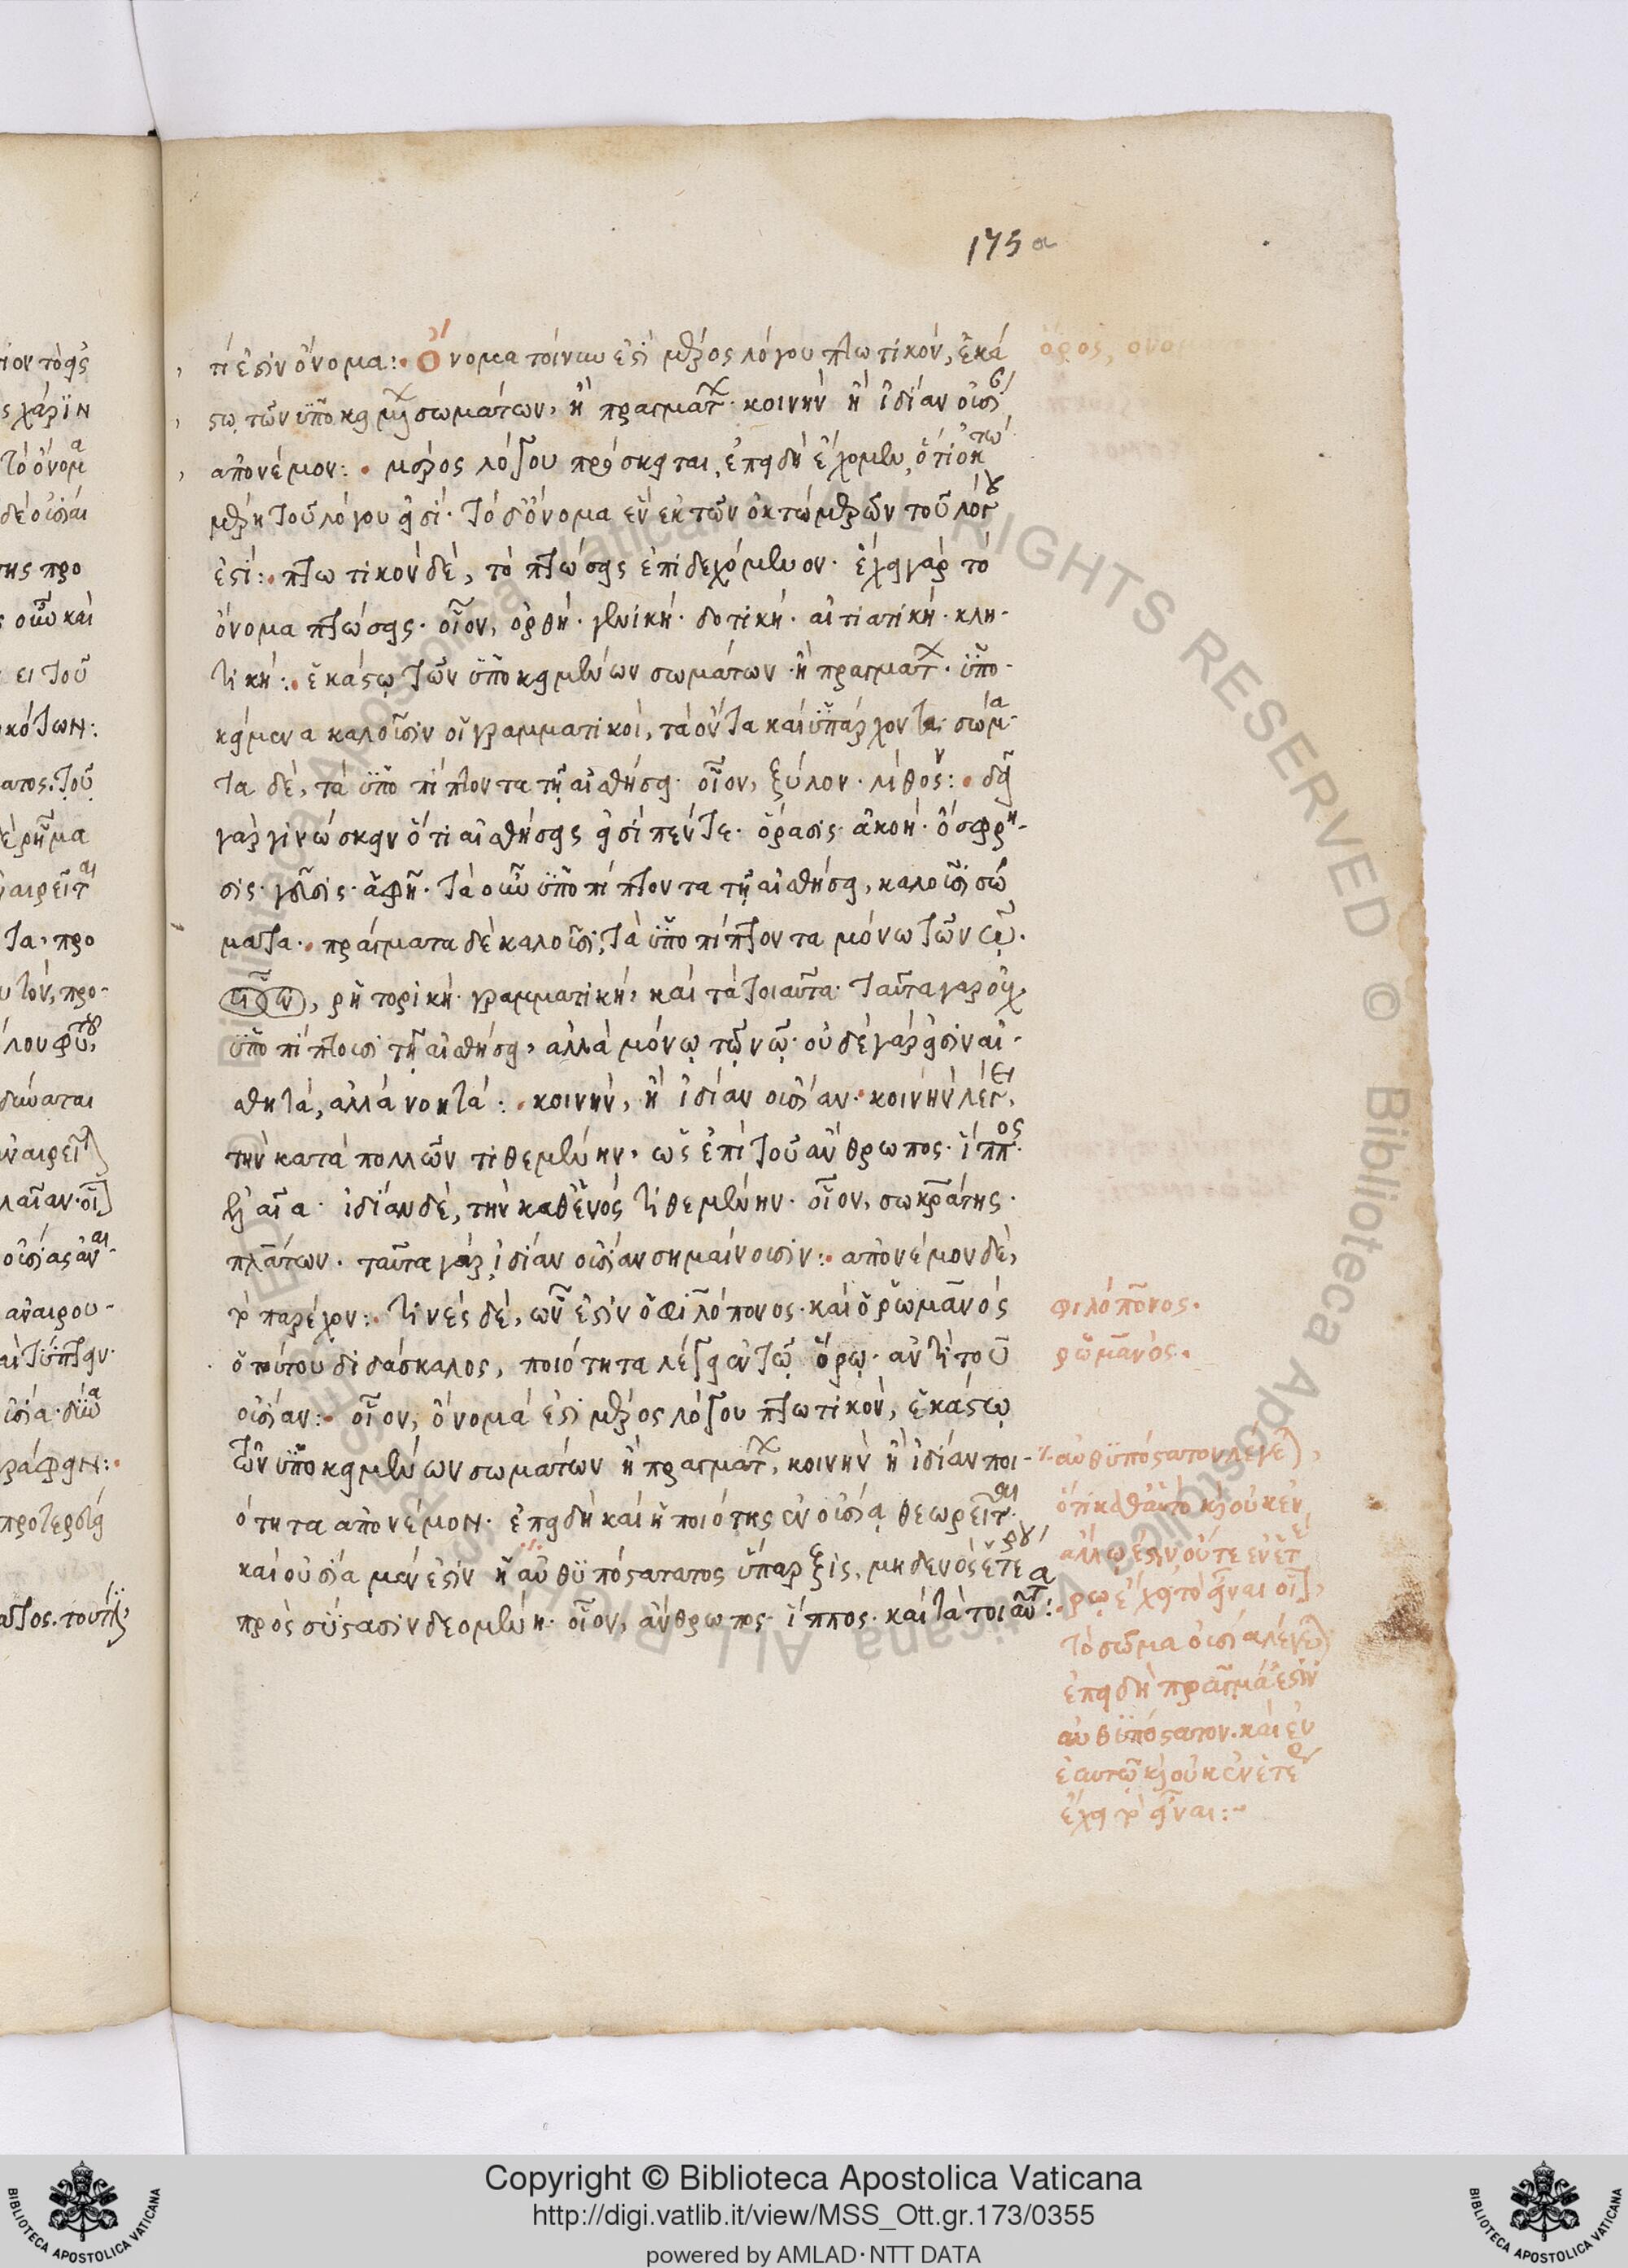 175 a
τί ἐστὶν ὄνομα:· Ὄνομα τοίνυν ἐστὶ μέρος λόγου πτωτικόν, ἑκά
στῳ τῶν ὑποκειμένων σωμάτων, ἢ πραγμάτων· κοινὴν ἢ ἰδίαν οὐσίαν
ἀπονέμον:· μέρος λόγου πρόσκειται, ἐπειδὴ ἔχομεν, ὅτι ὀκτὼ
μέρη τοῦ λόγου εἰσί· τὸ δ' ὄνομα ἓν ἐκ τῶν ὀκτὼ μερῶν τοῦ λόγου
ἐστί:· πτωτικὸν δὲ, τὸ πτώσεις ἐπιδεχόμενον· ἔχει γὰρ τὸ
ὄνομα πτώσεις· οἷον, ὀρθή· γενική· δοτική· αἰτιατική· κλη-
τική:· ἑκάστῳ τῶν ὑποκειμένων σωμάτων ἢ πραγμάτων· ὑπο-
κείμενα καλοῦσιν οἱ γραμματικοί, τὰ ὄντα καὶ ὑπάρχοντα· σώμα-
τα δὲ, τὰ ὑποπίπτοντα τῇ αἰσθήσει· οἷον, ξύλον· λίθον:· δεῖ
γὰρ γινώσκειν ὅτι αἰσθήσεις εἰσὶ πέντε· ὅρασις· ἀκοή· ὄσφρη-
σις· γεῦσις· ἁφῆ· τὰ οὖν ὑποπίπτοντα τῇ αἰσθήσει, καλοῦσι σώ
ματα:· πράγματα δὲ καλοῦσι, τὰ ὑποπίπτοντα μόνω τῶν
ῥητορική· γραμματική, καὶ τὰ τοιαῦτα· ταῦτα γὰρ οὐχ
ὑποπίπτουσι τῇ αἰσθήσει, ἀλλὰ μόνῳ τῷ νῷ· οὐδὲ γάρ εἰσιν αἰ-
σθητά, ἀλλὰ νοητά:· κοινήν, ἢ ἰδίαν οὐσίαν· κοινὴν λέγει,
τὴν κατὰ πολλῶν τιθεμένην, ὡς ἐπὶ τοῦ ἄνθρωπος· ἵππος·
ἐλαία· ἰδίαν δέ, τὴν καθενὸς τιθεμένην· οἷον, σωκράτης·
πλάτων· ταῦτα γὰρ ἰδίαν οὐσίαν σημαίνουσιν:· ἀπονέμον δὲ,
τὸ παρέχον:· τινὲς δέ, ὧν ἐστὶν ὁ φιλόπονος· καὶ ὁ ῥωμανὸς
ὁ τούτου διδάσκαλος, ποιότητα λέγει ἐν τῷ ὅρῳ· ἀντὶ τοῦ
οὐσίαν:· οἷον, ὄνομά ἐστι μέρος λόγου πτωτικόν, ἑκάστῳ
τῶν ὑποκειμένων σωμάτων ἢ πραγμάτων, κοινὴν ἢ ἰδίαν ποι-
ότητα ἀπονέμον· ἐπειδὴ καὶ ἡ ποιότης ἐν οὐσίᾳ θεωρεῖται·
καὶ οὐσία μέν ἐστιν ἡ αὐθϋπόστατος ὕπαρξις, μηδενὸς ἑτέρου
πρὸς σύστασιν δεομένη· οἷον, ἄνθρωπος· ἵππος· καὶ τὰ τοιαῦτα:·
ὅρος,
φιλόπονος·
ῥωμανός·
αὐθϋπόστατον λέγεται,
ὅτι καθ' αὑτὸ καὶ οὐκ ἐν
ἄλλῳ ἐστὶν οὔτε ἐν ἑτέ
ρῳ ἔχει τὸ εἶναι οἷον,
τὸ σῶμα οὐσία λέγεται
ἐπειδὴ πρᾶγμά ἐστιν
αὐθϋπόστατον· καὶ ἐν
ἑαυτῷ καὶ οὐκ ἐν ἑτέρῳ
ἔχει τὸ εἶναι:·
Copyright © Biblioteca Apostolica Vaticana
http://digi.vatlib.it/view/MSS_Ott.gr.173/0355
powered by AMLAD·NTT DATA
BIBLIOTECA APOSTOLICA VATICANA
BIBLIOTECA APOSTOLICA VATICANA